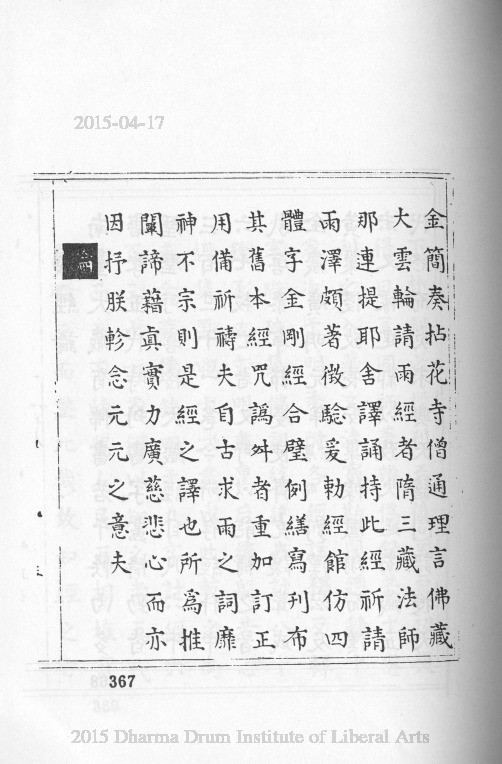 2015-04-17
金簡奏拈花寺僧通理言佛藏
大雲輪請雨經者隋三藏法師
那連提耶舍譯誦持此經祈請
雨澤頗著徴騐爰勅經館仿四
體字金剛經合璧例繕寫刊布
其舊本經咒譌舛者重加訂正
用備祈禱夫自古求雨之詞靡
神不宗則是經之譯也所爲推
闡諦藉真實力廣慈悲心而亦
因抒朕軫念元元之意夫
論
367
2015 Dharma Drum Institute of Liberal Arts